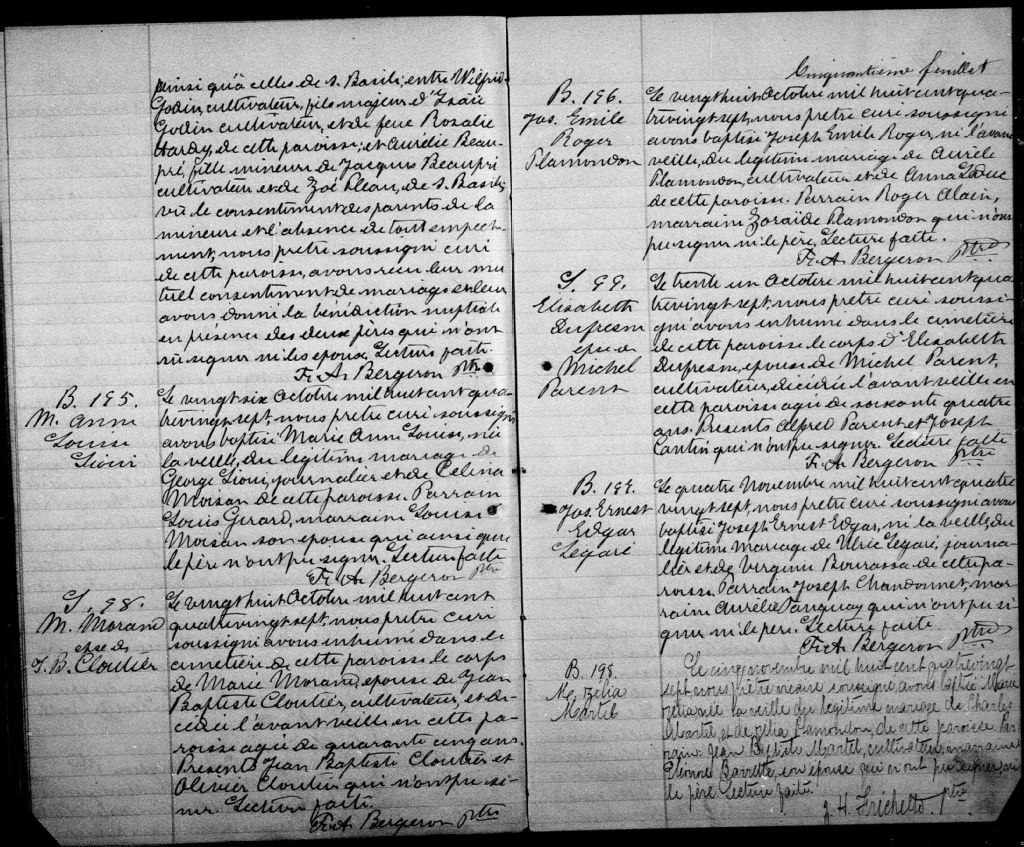 ainsi qu'à celles de S. Basile; entre Wilfrid
Godin cultivateur, fils majeur d'Isaïe
Godin cultivateur, et de feue Rosalie
Hardy, de cette paroisse; et Aurélie Beau-
pré, fille mineure de Jacques Beaupré
cultivateur et de Zoé Pleau, de S. Basile;
vu le consentiment des parents de la
mineure et l'absence de tout empech-
ment, nous pretre soussigné curé
de cette paroisse, avons reçu leur mu
tuel consentiment de mariage et leur
avons donné la bénédiction nuptiale
en présence des deux pères qui n'ont
su signer ni les epoux. Lecture faite.
Fr. A. Bergeron ptre
B. 195.
M. Anne
Louise
Lioui
Le vingt six Octobre mil huit cent qua
trevingt sept, nous pretre curé soussigné
avons baptisé Marie Anne Louise, née
la veille, du legitime mariage de
George Lioui, journalier et de Celina
Moisan de cette paroisse. Parrain
Louis Girard, marraine Louise
Moisan son epouse qui ainsi que
le père n'ont pu signer. Lecture faite
Fr. A. Bergeron ptre
S. 98.
M. Morand
epse de
J. B. Cloutier
Le vingt huit Octobre mil huit cent
quatrevingt sept, nous pretre curé
soussigné avons inhumé dans le
cimetière de cette paroisse le corps
de Marie Morand, epouse de Jean
Baptiste Cloutier, cultivateur, et dé-
cédée l'avant veille en cette pa-
roisse agée de quarante cinq ans.
Presents Jean Baptiste Cloutier et
Olivier Cloutier qui n'ont pu si-
ner. Lecture faite.
Fr. A. Bergeron ptre
Cinquantième feuillet
B. 196.
Jos. Emile
Roger
Plamondon
Le vingt huit Octobre mil huit cent qua-
trevingt sept, nous pretre curé soussigné
avons baptisé Joseph Emile Roger, né l'avant
veille, du legitime mariage de Aurèle
Plamondon, cultivateur et de Anna Leduc
de cette paroisse. Parrain Roger Alain,
marraine Zoraïde Plamondon qui n'ont
pu signer ni le père. Lecture faite.
Fr. A. Bergeron ptre
S. 99.
Elisabeth
Dufresne
epse de
Michel
Parent
Le trente un Octobre mil huit cent qua
trevingt sept, nous pretre curé soussi-
gné avons inhumé dans le cimetière
de cette paroisse le corps d'Elisabeth
Dufresne, epouse de Michel Parent,
cultivateur, décédée l'avant veille en
cette paroisse agée de soixante quatre
ans. Presents Alfred Parent et Joseph
Cantin qui n'ont pu signer. Lecture faite
Fr. A. Bergeron ptre
B. 197.
Jos Ernest
Edgar
Légaré
Le quatre Novembre mil huit cent quatre
vingt sept, nous pretre curé soussigné avons
baptisé Joseph Ernest Edgar, né la veille, du
legitime mariage de Ulric Légaré, journa-
lier et de Virginie Bourassa de cette pa-
roisse. Parrain Joseph Chandonnet, mar-
raine Aurélie Tanguay qui n'ont pu si-
gner ni le père. Lecture faite.
Fr. A. Bergeron ptre
B. 198
M. ezelia
Martel
Le cinq novembre mil huit cent quatrevingt
sept nous prêtre vicaire soussigné, avons baptisé Marie
née la veille du légitime mariage de Charles
Martel, et de Zélia Plamondon, de cette paroisse. Par-
rain Jean Baptiste Martel, cultivateur, marraine
Eléonore Barrette, son épouse qui n'ont pu signer, ni
le père. Lecture faite.
J. H. Fréchette. Ptre